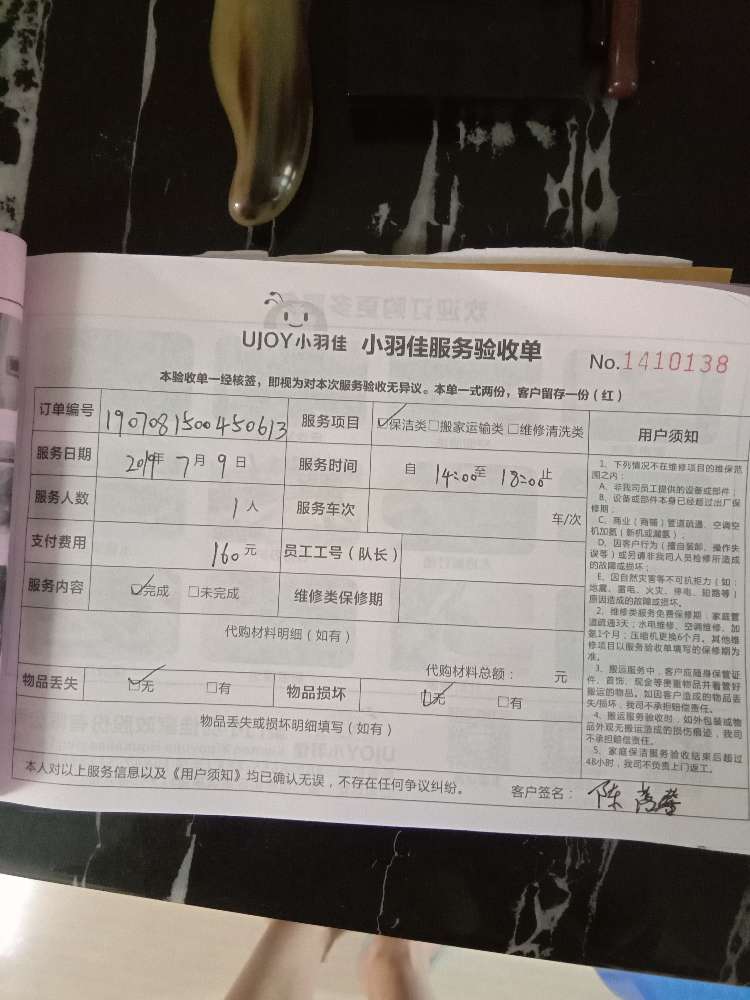 UJOY小羽佳 小羽佳服务验收单 No.1410138
本验收单一经核签，即视为对本次服务验收无异议。本单一式两份，客户留存一份（红）
订单编号 190708150045061​3 服务项目 ☑保洁类□搬家运输类□维修清洗类
服务日期 2019年 7月 9日 服务时间 自 14:00至 18:00止
服务人数 1人 服务车次 车/次
支付费用 160元 员工工号（队长）
服务内容 ☑完成 □未完成 维修类保修期
代购材料明细（如有）
代购材料总额： 元
物品丢失 ☑无 □有 物品损坏 ☑无 □有
物品丢失或损坏明细填写（如有）
用户须知
1、下列情况不在维修项目的维保范
围之内：
A、非我司员工提供的设备或部件；
B、设备或部件本身已经超过出厂保
修期；
C、商业（商铺）管道疏通、空调空
机加氨（新机或漏氨）；
D、因客户行为（擅自装卸、操作失
误等）或另请非我司人员检修所造成
的故障或损坏；
E、因自然灾害等不可抗拒力（如：
地震、雷电、火灾、停电、短路等）
原因造成的故障或损坏。
2、维修类服务免费保修期：家庭管
道疏通3天；水电维修、空调维修、加
氨1个月；压缩机更换6个月。其他维
修项目以服务验收单填写的保修期为
准。
3、搬运服务中，客户应随身保管证
件、首饰、现金等贵重物品并看管好
搬运的物品。如因客户造成的物品丢
失/损坏，我司不承担赔偿责任。
4、搬运服务验收时，如外包装或物
品外观无搬运造成的损伤痕迹，我司
不承担赔偿责任。
5、家庭保洁服务验收结束后超过
48小时，我司不负责上门返工。
本人对以上服务信息以及《用户须知》均已确认无误，不存在任何争议纠纷。 客户签名： 陈